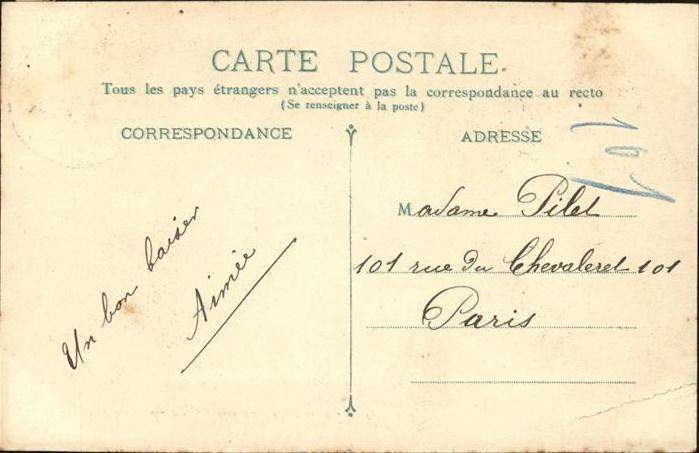 CARTE POSTALE
Tous les pays étrangers n'acceptent pas la correspondance au recto
(Se renseigner à la poste)
CORRESPONDANCE
Un bon baiser
Aimée
ADRESSE
101
Madame Pilet
101 rue du Chevaleret 101
Paris